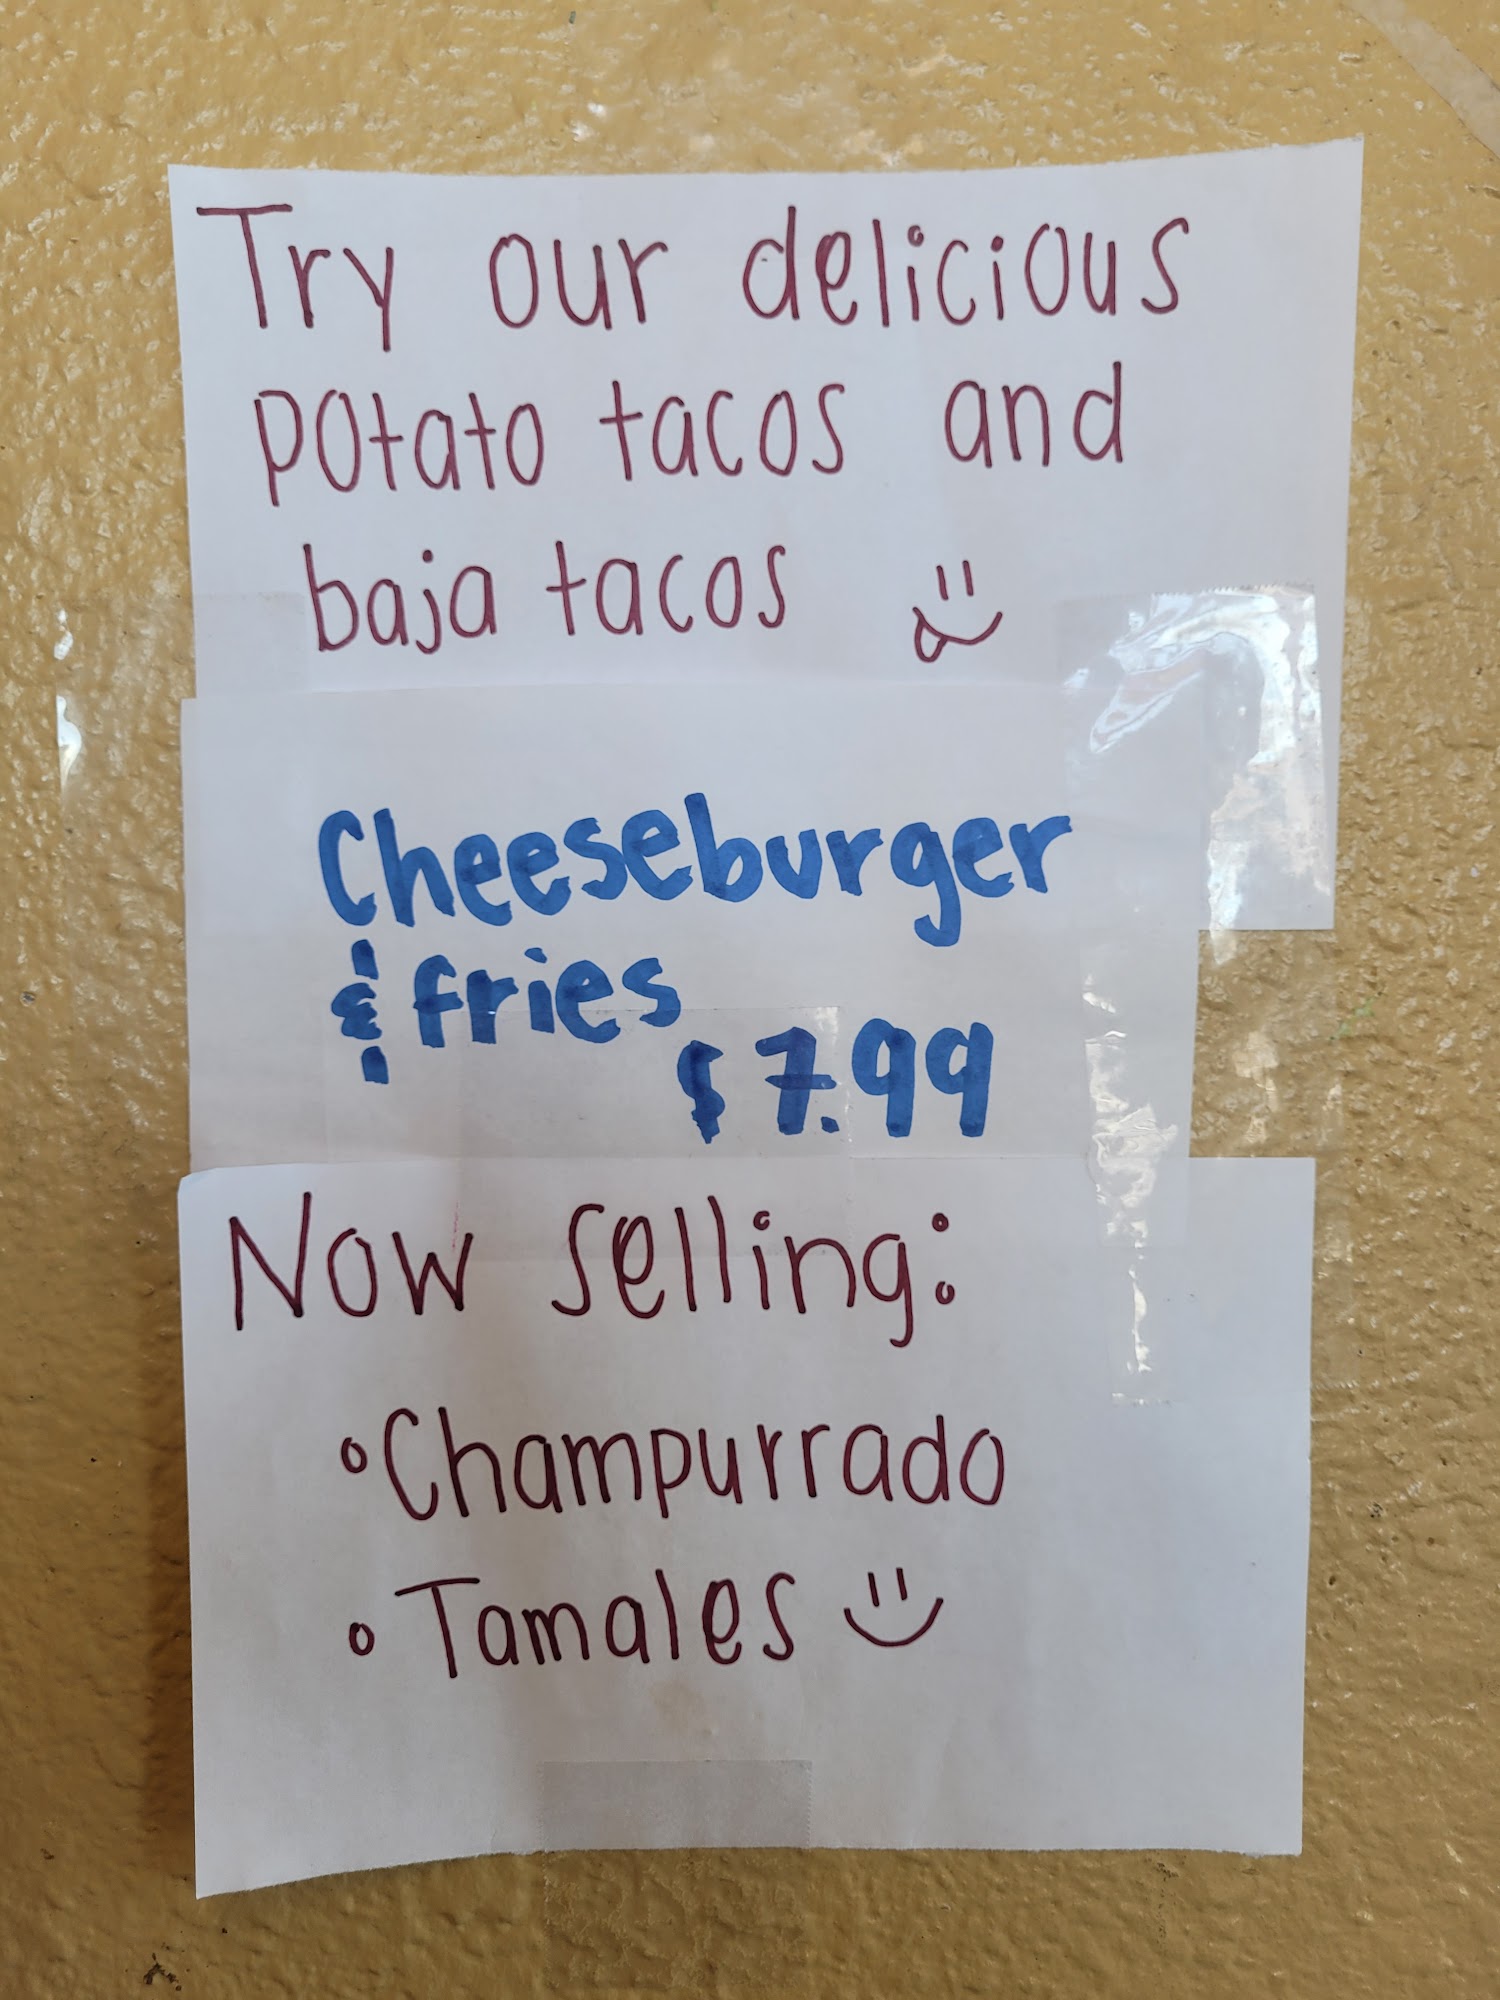 Try our delicious
potato tacos and
baja tacos
Cheeseburger
& fries
$7.99
Now selling:
• Champurrado
• Tamales